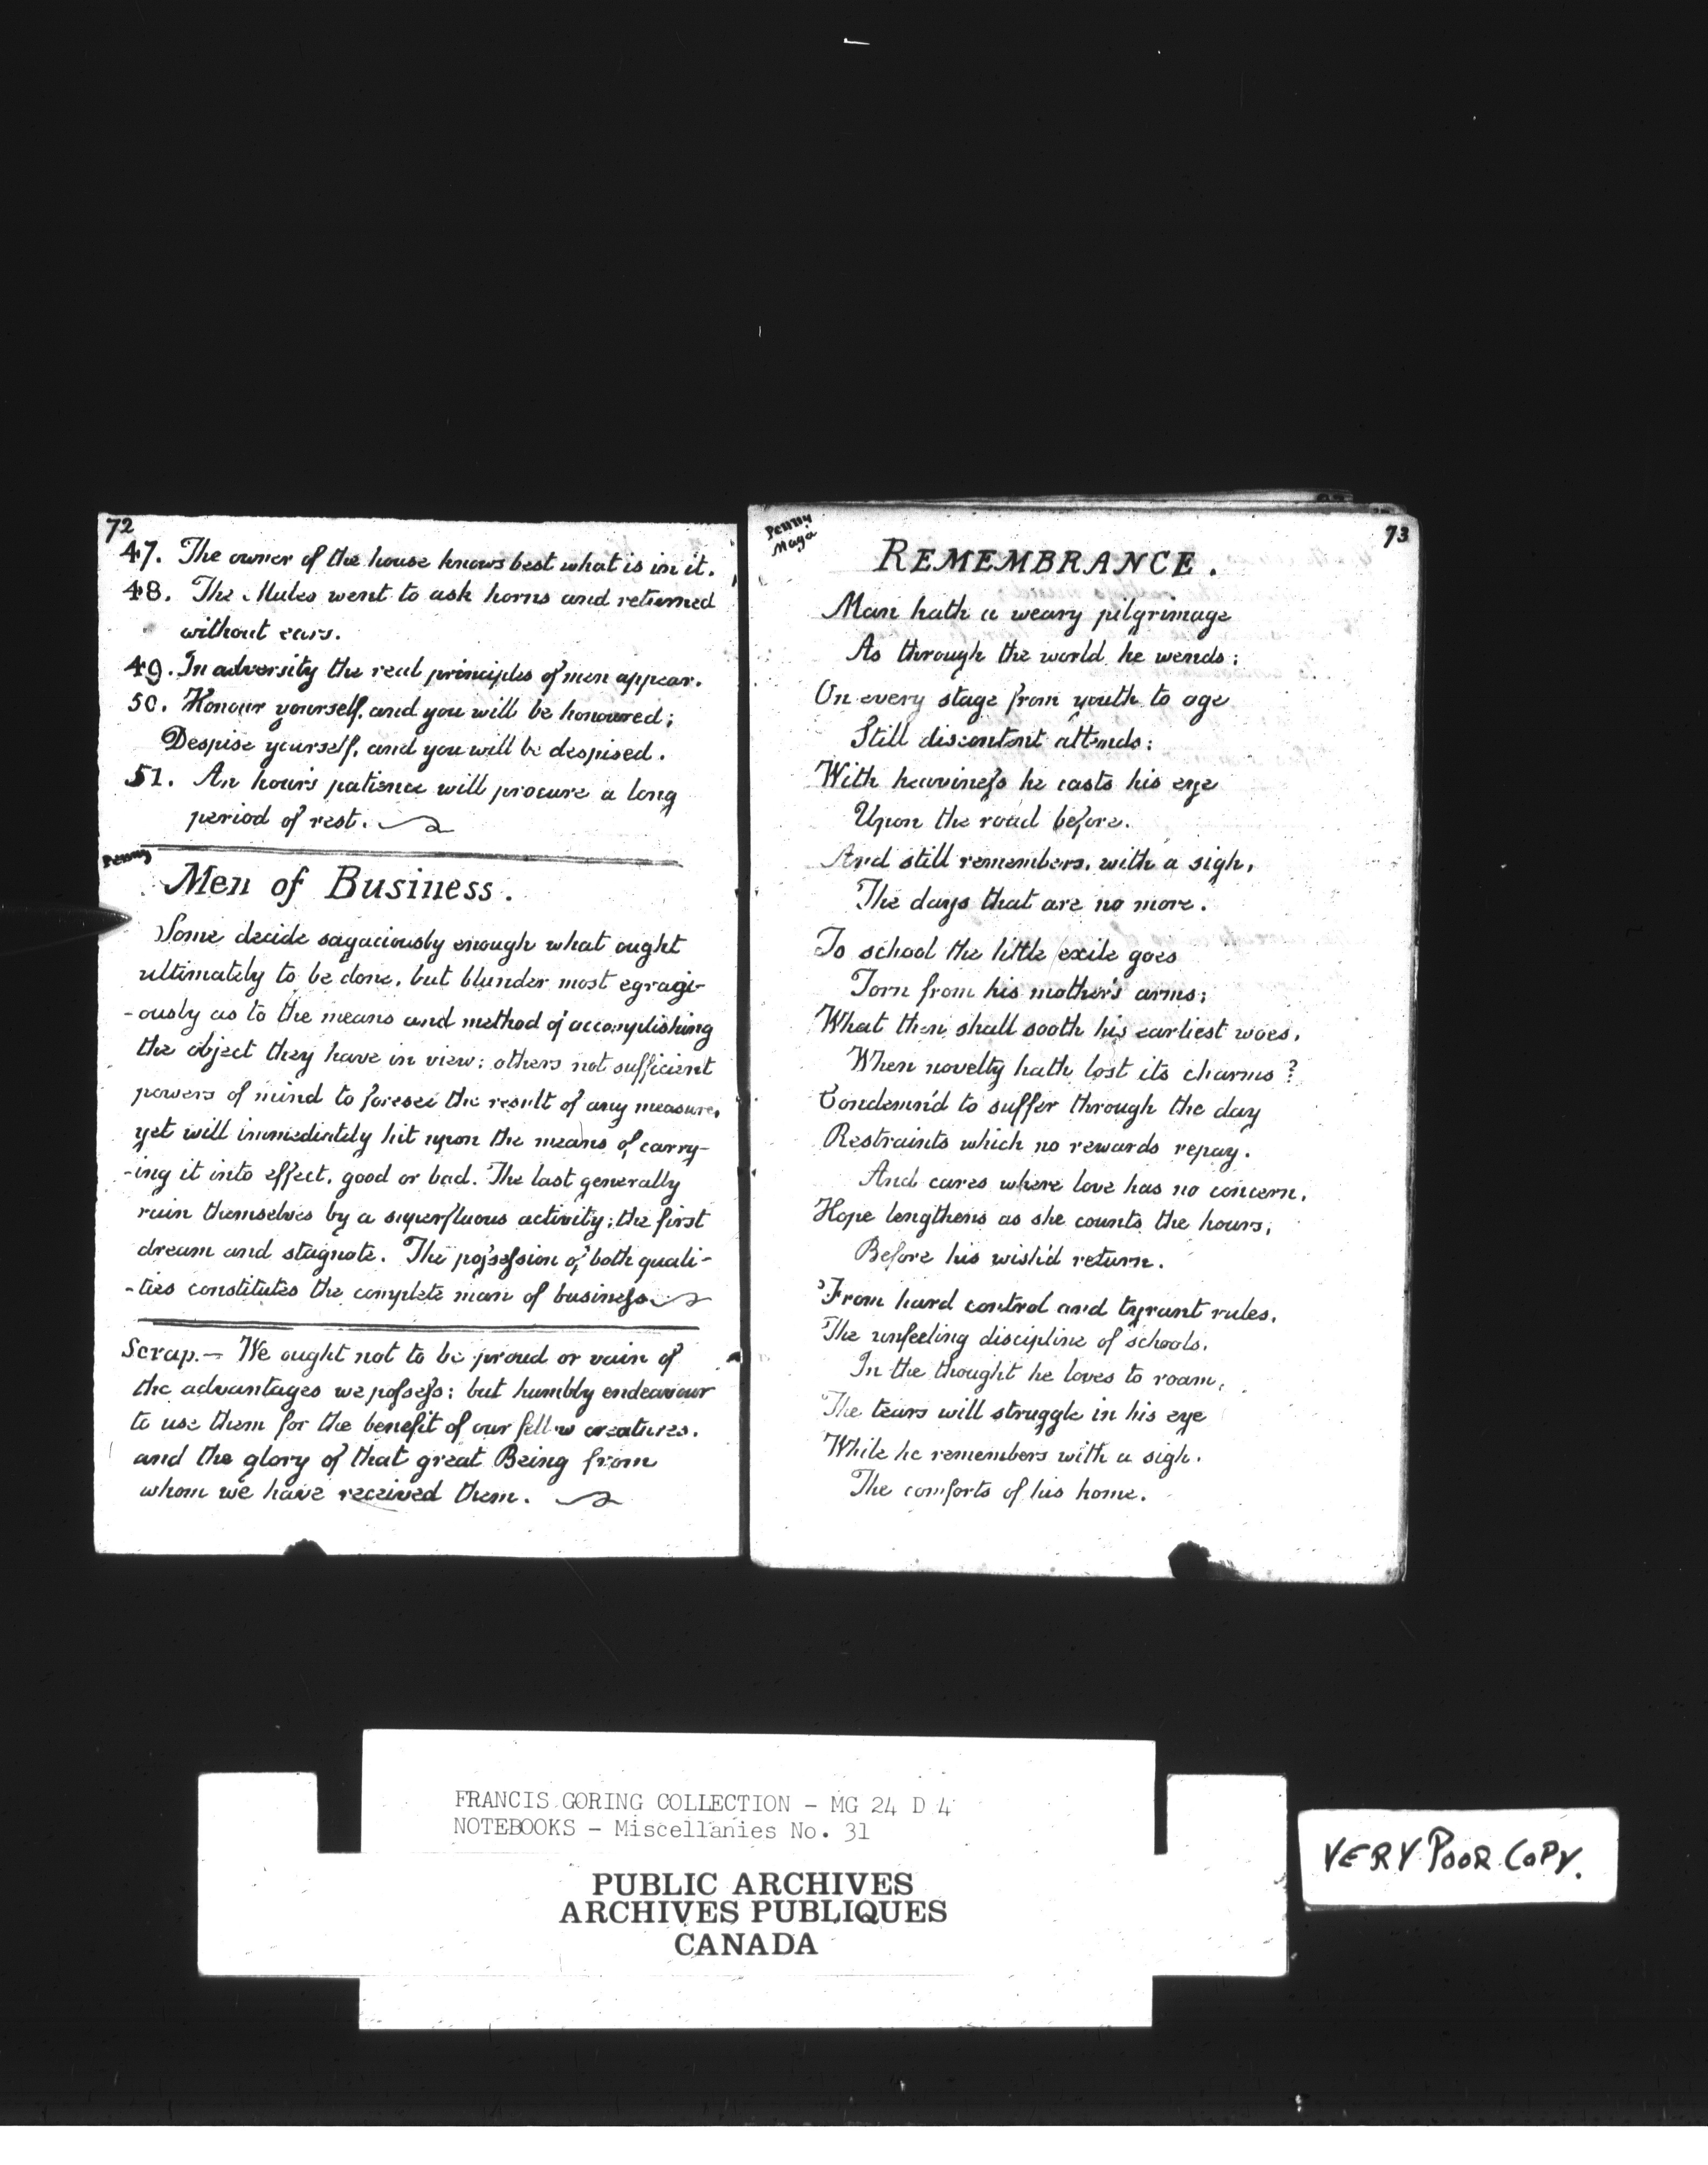 72
47. The owner of the house knows best what is in it.
48. The Mules went to ask horns and returned
without ears.
49. In adversity the real principles of men appear.
50. Honour yourself, and you will be honoured;
Despise yourself, and you will be despised.
51. An hour's patience will procure a long
period of rest.
Penny
Men of Business.
Some decide sagaciously enough what ought
ultimately to be done, but blunder most egragi-
-ously as to the means and method of accomplishing
the object they have in view: others not sufficient
powers of mind to foresee the result of any measure,
yet will immediately hit upon the means of carry-
-ing it into effect, good or bad. The last generally
ruin themselves by a superfluous activity; the first
dream and stagnate. The possession of both quali-
-ties constitutes the complete man of business.
Scrap.— We ought not to be proud or vain of
the advantages we possess: but humbly endeavour
to use them for the benefit of our fellow creatures.
and the glory of that great Being from
whom we have received them.
Penny
Maga
73
REMEMBRANCE.
Man hath a weary pilgrimage
As through the world he wends;
On every stage from youth to age
Still discontent attends:
With heaviness he casts his eye
Upon the road before.
And still remembers, with a sigh,
The days that are no more.
To school the little exile goes
Torn from his mother's arms;
What then shall sooth his earliest woes,
When novelty hath lost its charms?
Condemn'd to suffer through the day
Restraints which no rewards repay.
And cares where love has no concern,
Hope lengthens as she counts the hours,
Before his wish'd return.
From hard control and tyrant rules,
The unfeeling discipline of schools,
In the thought he loves to roam,
The tears will struggle in his eye
While he remembers with a sigh.
The comforts of his home.
FRANCIS GORING COLLECTION - MG 24 D 4
NOTEBOOKS - Miscellanies No. 31
PUBLIC ARCHIVES
ARCHIVES PUBLIQUES
CANADA
VERY POOR COPY.